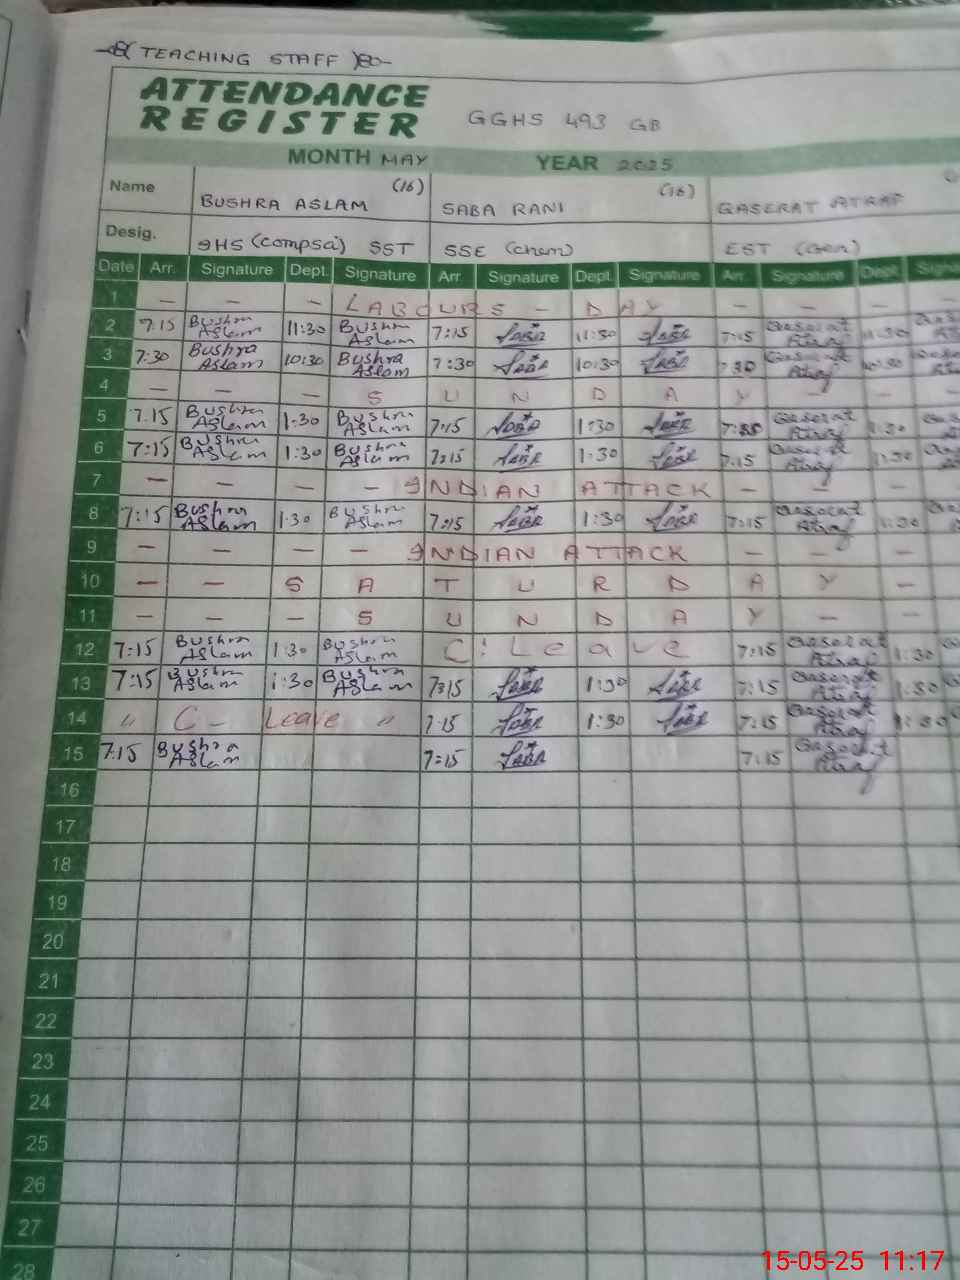 (TEACHING STAFF)
ATTENDANCE
REGISTER GGHS 493 GB
MONTH MAY YEAR 2025
Name BUSHRA ASLAM (16) SABA RANI (16) QASERAT ATRAF
Desig. IHS (Compsci) SST SSE (Chem) EST (Gen)
Date Arr. Signature Dept. Signature Arr. Signature Dept. Signature Arr. Signature Dept.
1 — — — LABOURS - DAY — —
2 7:15 Bushra Aslam 11:30 Bushra Aslam 7:15 Saba 11:30 Saba 7:15 Qaserat Atraf 11:30
3 7:30 Bushra Aslam 10:30 Bushra Aslam 7:30 Saba 10:30 Saba 7:30 Qaserat Atraf 10:30
4 — — — S U N D A Y — —
5 7.15 Bushra Aslam 1:30 Bushra Aslam 7:15 Saba 1:30 Saba Qaserat Atraf 1:30
6 7:15 Bushra Aslam 1:30 Bushra Aslam 7:15 Saba 1:30 Saba 7:15 Qaserat Atraf 1:30
7 — — — — INDIAN ATTACK — — —
8 7:15 Bushra Aslam 1:30 Bushra Aslam 7:15 Saba 1:30 Saba 7:15 Qaserat Atraf 1:30
9 — — — — INDIAN ATTACK — — —
10 — — S A T U R D A Y —
11 — — — S U N D A Y — —
12 7:15 Bushra Aslam 1:30 Bushra Aslam C: Leave 7:15 Qaserat Atraf 1:30
13 7:15 Bushra Aslam 1:30 Bushra Aslam 7:15 Saba 1:30 Saba 7:15 Qaserat Atraf 1:30
14 " C- Leave " 7:15 Saba 1:30 Saba 7:15 Qaserat Atraf 1:30
15 7:15 Bushra Aslam 7:15 Saba 7:15 Qaserat Atraf
16
17
18
19
20
21
22
23
24
25
26
27
28
15-05-25 11:17